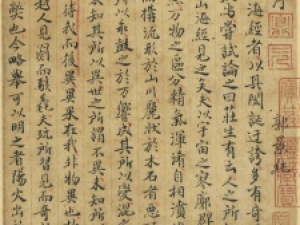 郭景純
海經者以其閎誕迂誇多有奇
嘗試論之曰莊生有云人之所
山海經見之矣夫以宇宙之寥廓群
万物之區分精氣渾淆自相濆
流形於山川麗狀於木石者惡
以乖鼓之於万響成其所以變混之
未知其所以異世之所謂不異未知其所
待我而後異異果在我非物異也
人見罽而駭毳夫玩所習見而奇
也今略舉可以明之者陽火出於